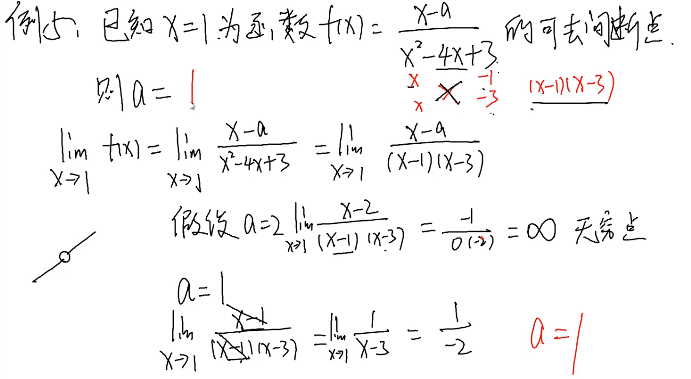 例5、已知 x=1 为函数 f(x)= (x-a)/(x²-4x+3) 的可去间断点.
则 a= 1
x -1
x -3
(x-1)(x-3)
lim x→1 f(x) = lim x→1 (x-a)/(x²-4x+3) = lim x→1 (x-a)/((x-1)(x-3))
假设 a=2 lim x→1 (x-2)/((x-1)(x-3)) = -1/(0(-2)) = ∞ 无穷点
a=1
lim x→1 (x-1)/((x-1)(x-3)) = lim x→1 1/(x-3) = 1/-2
a=1